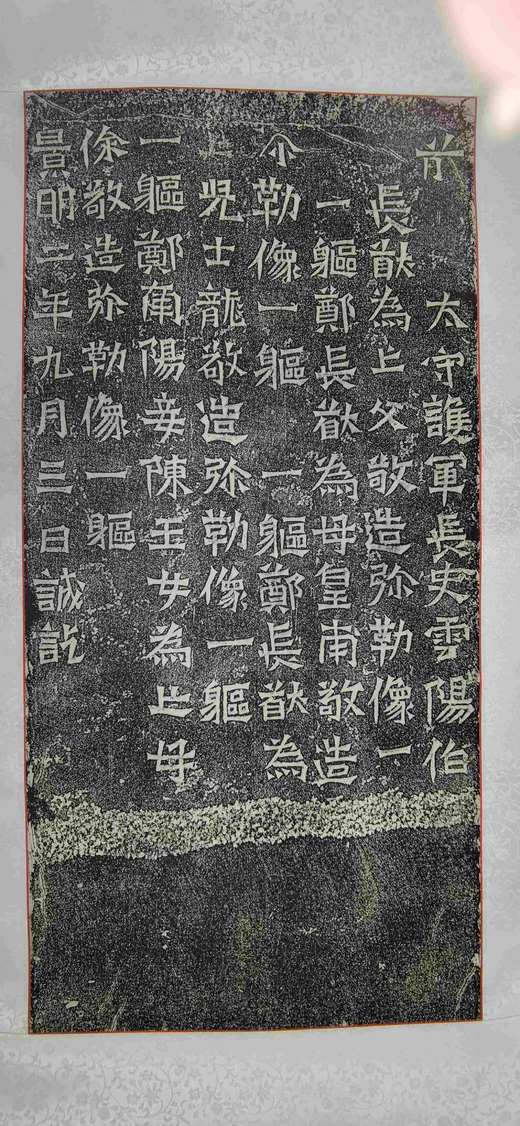 前 太守護軍長史雲陽伯
長猷為亡父敬造弥勒像一
一軀鄭長猷為母皇甫敬造
尒勒像一軀 一軀鄭長猷為
亡児士龍敬造弥勒像一軀
一軀鄭南陽妾陳玉女為亡母
徐敬造弥勒像一軀
景明二年九月三日誠訖